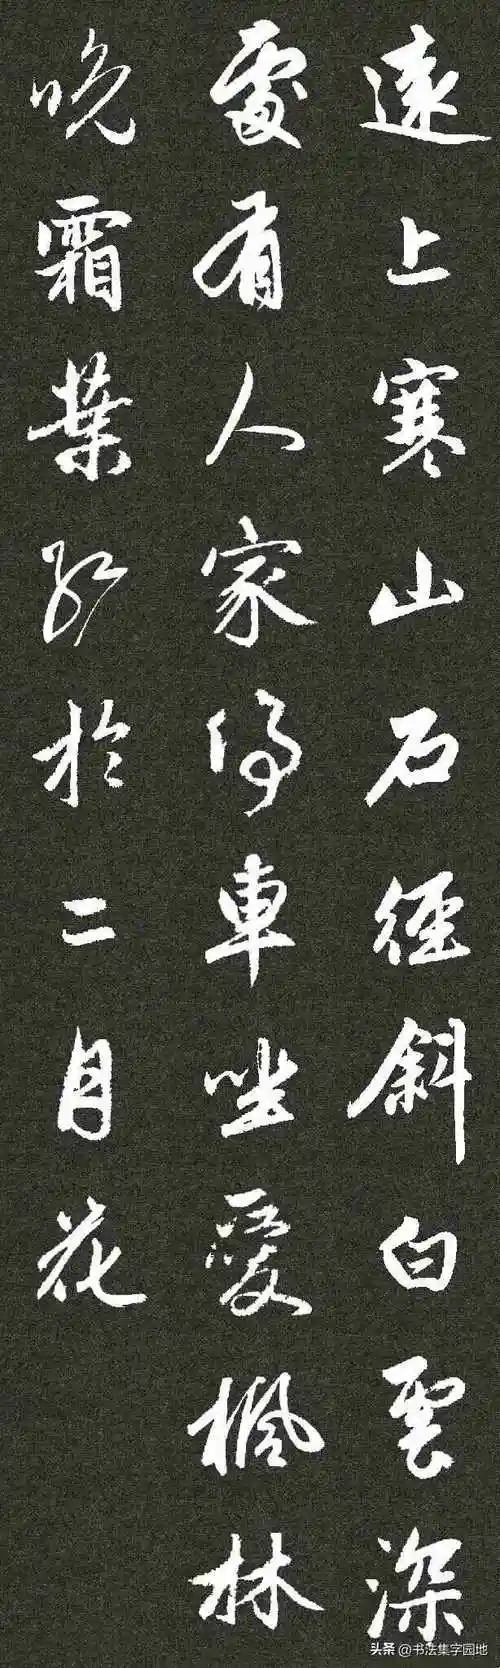 遠上寒山石徑斜白雲深
處有人家停車坐愛楓林
晚霜葉紅於二月花
头条 @书法集字园地